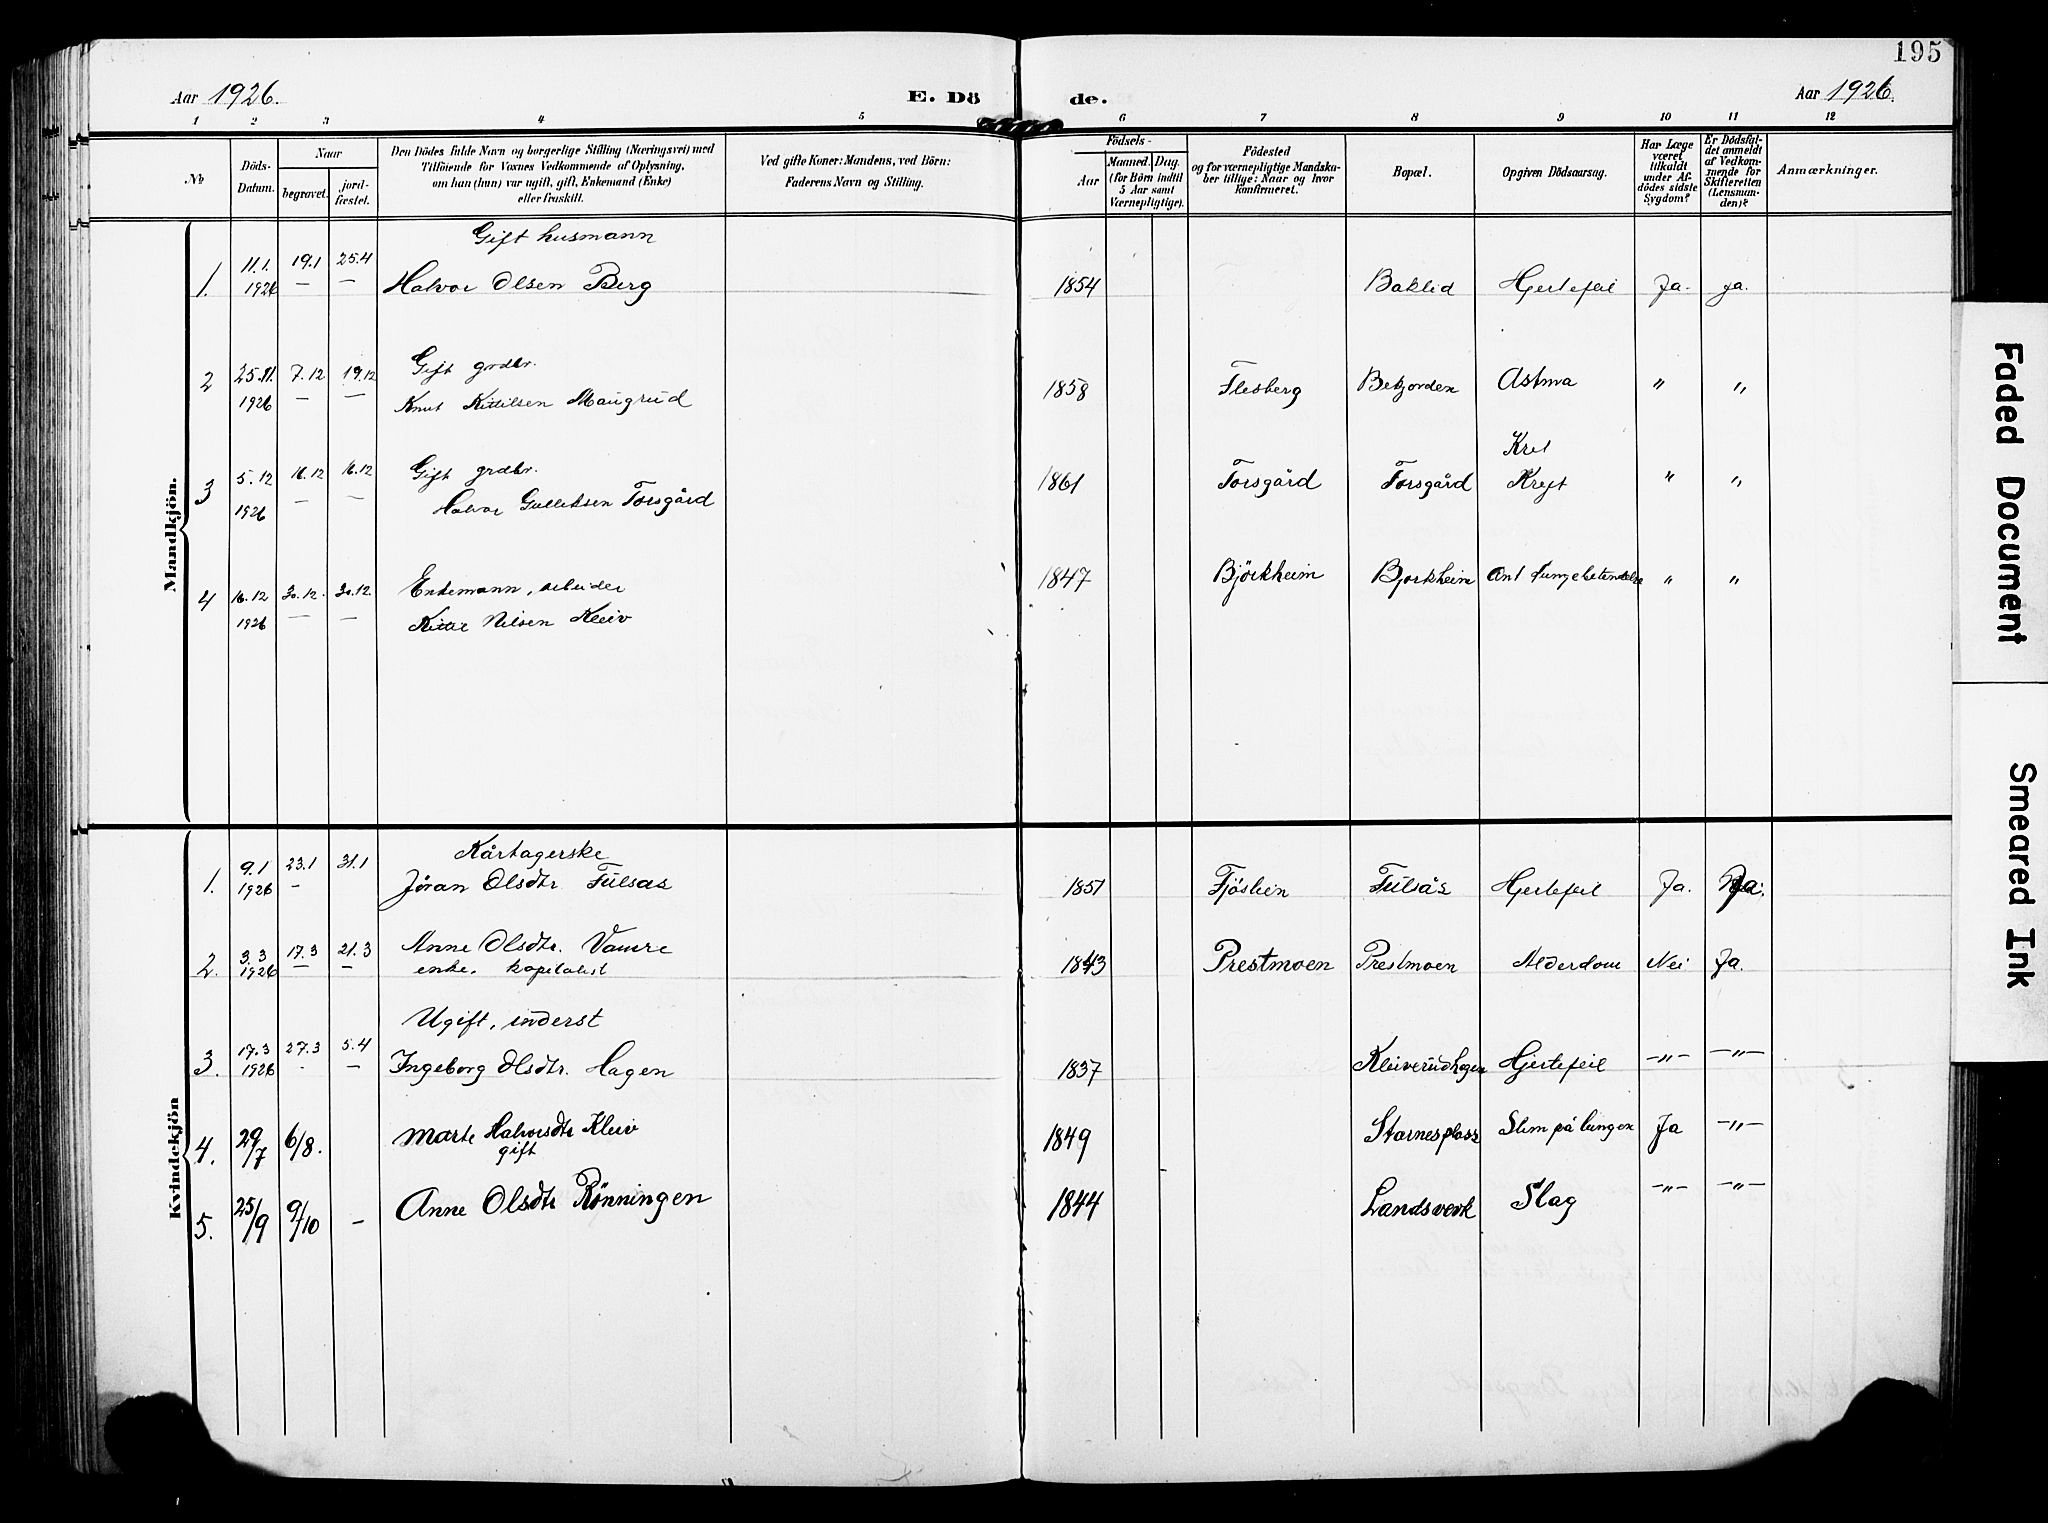 195
Aar 1926.
E. Dö de.
Aar 1926.
1 2 3 4 5 6 7 8 9 10 11 12
No
Döds-
Datum.
Naar
begravet.
jord-
fæstet.
Den Dödes fulde Navn og borgerlige Stilling (Næringsvei) med
Tilföiende for Voxnes Vedkommende af Oplysning,
om han (hun) var ugift, gift, Enkemand (Enke)
eller fraskilt.
Ved gifte Koner: Mandens, ved Börn:
Faderens Navn og Stilling.
Födsels-
Aar
Maaned. Dag.
(for Börn indtil
5 Aar samt
Værnepligtige).
Födested
og for værnepligtige Mandska-
ber tillige: Naar og hvor
konfirmeret.
Bopæl.
Opgiven Dödsaarsag.
Har Læge
været
tilkaldt
under Af-
dödes sidste
Sygdom?
Er Dödsfal-
det anmeldt
af Vedkom-
mende for
Skifteretten
(Lensman-
den)?
Anmærkninger.
Mandkjön.
Gift husmann
1. 11.1. 19.1 25.4
1926 — — Halvor Olsen Berg 1854 Baklid Hjertefeil Ja. ja.
Gift grdbr.
2 25.11. 7.12 19.12 1858 Flesberg Bekjorden Astma " "
1926 — — Knut Kittilsen Maugrud
Kref
3 5.12 16.12 16.12 Gift grdbr. 1861 Torsgård Torsgård Kreft " "
1926 — — Halvor Gulliksen Torsgård
4 16.12 30.12. 30.12. Enkemann, arbeider 1847 Björkheim Bjorkheim Ant lungebetendelse " "
1926 — — Kittil Nilsen Kleiv
Kvindekjön
9.1 23.1 31.1 Kårtagerske
1. 1926 - Jöran Olsdtr. Fulsas 1851 Fjöslien Fulsås Hjertefeil Ja. Ja.
2. 3.3 17.3 21.3 Anne Olsdtr. Vamre
1926 — — enke. kapitalist 1843 Prestmoen Prestmoen Alderdom Nei Ja.
Ugift, inderst
3. 17.3 27.3 5.4
1926 - — Ingeborg Olsdtr. Hagen 1837 Kleiverudhagen Hjertefeil —"— —"—
4. 29/7 6/8. Marte Halvorsdtr Kleiv 1849 Starnesplass Slim på lungen Ja —"—
gift
5. 25/9 9/10 — Anne Olsdtr Rönningen 1844 Landsverk Slag —"— —"—
Faded Document
Smeared Ink